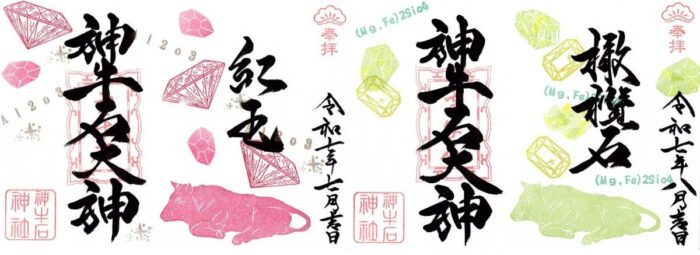 奉拝
令和七年七月吉日
紅玉
Al2O3
神牛石大神
Al2O3
Al2O3
神牛石
神社
奉拝
令和七年八月吉日
橄欖石
(Mg,Fe)2Sio4
(Mg,Fe)2Sio4
神牛石大神
(Mg,Fe)2Sio4
神牛石
神社